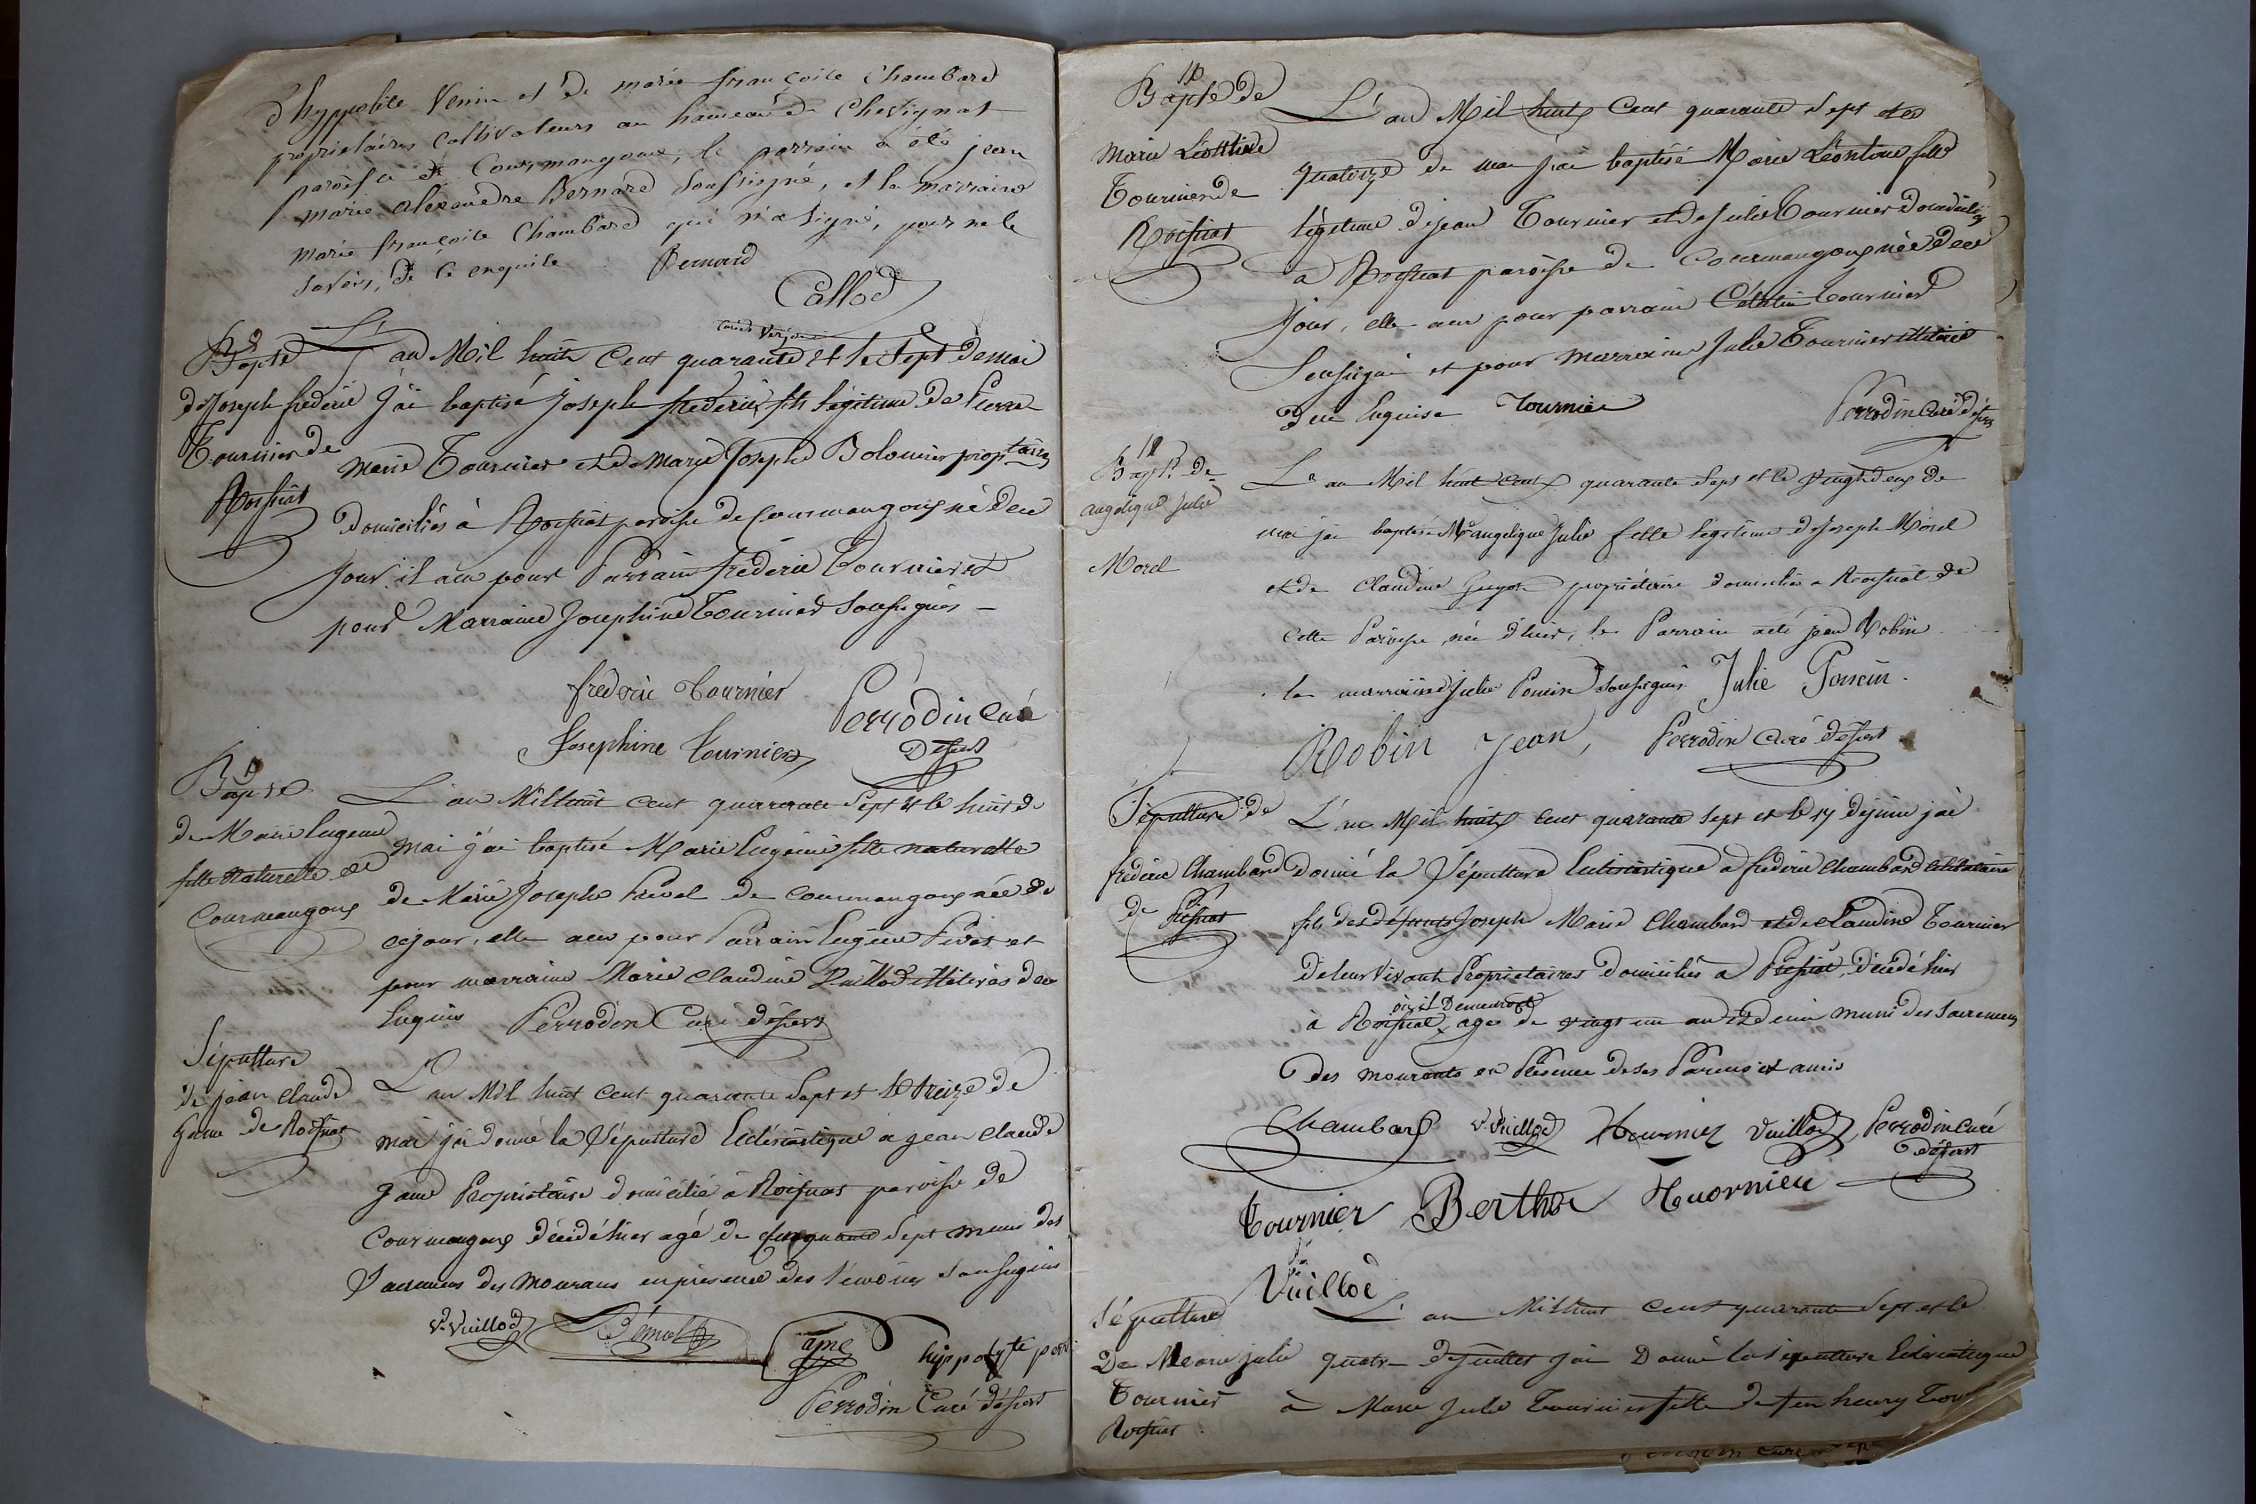 d'hyppolite Venin et de marie françoise Chambard
propriétaires cultivateurs au hameau de Chevignat
paroisse de Courmangoux; le parrain a été jean
marie alexandre Bernard soussigné, et la marraine
marie françoise Chambard qui n'a signé, pour ne le
savoir, de ce enquise Bernard
Callod
curé de Verjon
8
Bapte
de Joseph frédéric
Tournier de
Roissiat
L'an Mil huit cent quarante et le sept de mai
j'ai baptisé joseph frédéric fils légitime de Pierre
marie Tournier et de marie Joseph Bolomier proptaires
domiciliés à Roissiat paroisse de Courmangoux né de ce
jour il a eu pour Parrain frédéric Tournier et
pour Marraine Josephine Tournier soussignés
frederic Tournier
Josephine Tournier
Perrodin Curé
Dessert
9
Bapte
de Marie Eugenie
fille Naturelle de
Courmangoux
L'an Mil huit cent quarante sept et le huit de
mai j'ai baptisé Marie Eugénie fille naturelle
de Marie Josephe de courmangoux née de
ce jour, elle a eu pour Parrain Eugène Pivot et
pour marraine Marie Claudine Vuillod illitérés de ce
Enquis Perrodin Curé dessert
Sépulture
de jean Claude
Game de Roissiat
L'an Mil huit cent quarante sept et le treize de
mai j'ai donné la Sépulture Eclésiastique a jean Claude
game Propriétaire domicilié à Roissiat paroisse de
Courmangoux décédé hier agé de cinquante sept muni des
Sacremens des Mourans en présence des témoins soussignés
V. Vuillod
game hippolyte
Perrodin Curé dessert
10
Bapte de
Marie Léontine
Tournier de
Roissiat
L'an Mil huit Cent quarante sept et le
quatorze de mai j'ai baptisé Marie Léontine fille
légitime de jean Tournier et de Julie Tournier domiciliés
a Roissiat paroisse de Courmangoux née de ce
jour, elle a eu pour parrain Célestin Tournier
Soussigné et pour marraine Julie Tournier illitérée
de ce Enquise Tournier
Perrodin Curé dessert
Bapt. de
angelique Julie
Morel
L'an Mil huit cent quarante sept et le vingt deux de
mai j'ai baptisé Me angelique Julie fille légitime de Joseph Morel
et de Claudine Guyot propriétaire domiciliés a Roissiat de
cette Paroisse née d'hier, le Parrain a été jean Robin
la marraine Julie Poncin soussignés Julie Poncin
Robin Jean, Perrodin Curé dessert
Sépulture de
frédéric Chambard
de Pressiat
L'an Mil huit cent quarante sept et le 17 de juin j'ai
donné la Sépulture Eclésiastique a frédéric Chambard célibataire
fils des défunts Joseph Marie Chambard et de Claudine Tournier
de leur Vivant Propriétaires domiciliés a Pressiat, décédé hier
où il Demeurait
à Roissiat, agé de vingt un an et demi muni des Sacremens
des mourants en Présence de ses Parens et amis
Chambard V. Vuillod Tournier Vuillod Perrodin Curé
dessert
Tournier Berthod Tuornieu
Vuillod
Sépulture
De Marie Julie
Tournier
Roissiat
L'an Mil huit cent quarante sept et le
quatre de juillet j'ai Donné la sépulture Eclésiastique
à Marie Julie Tournier fille de feu henry